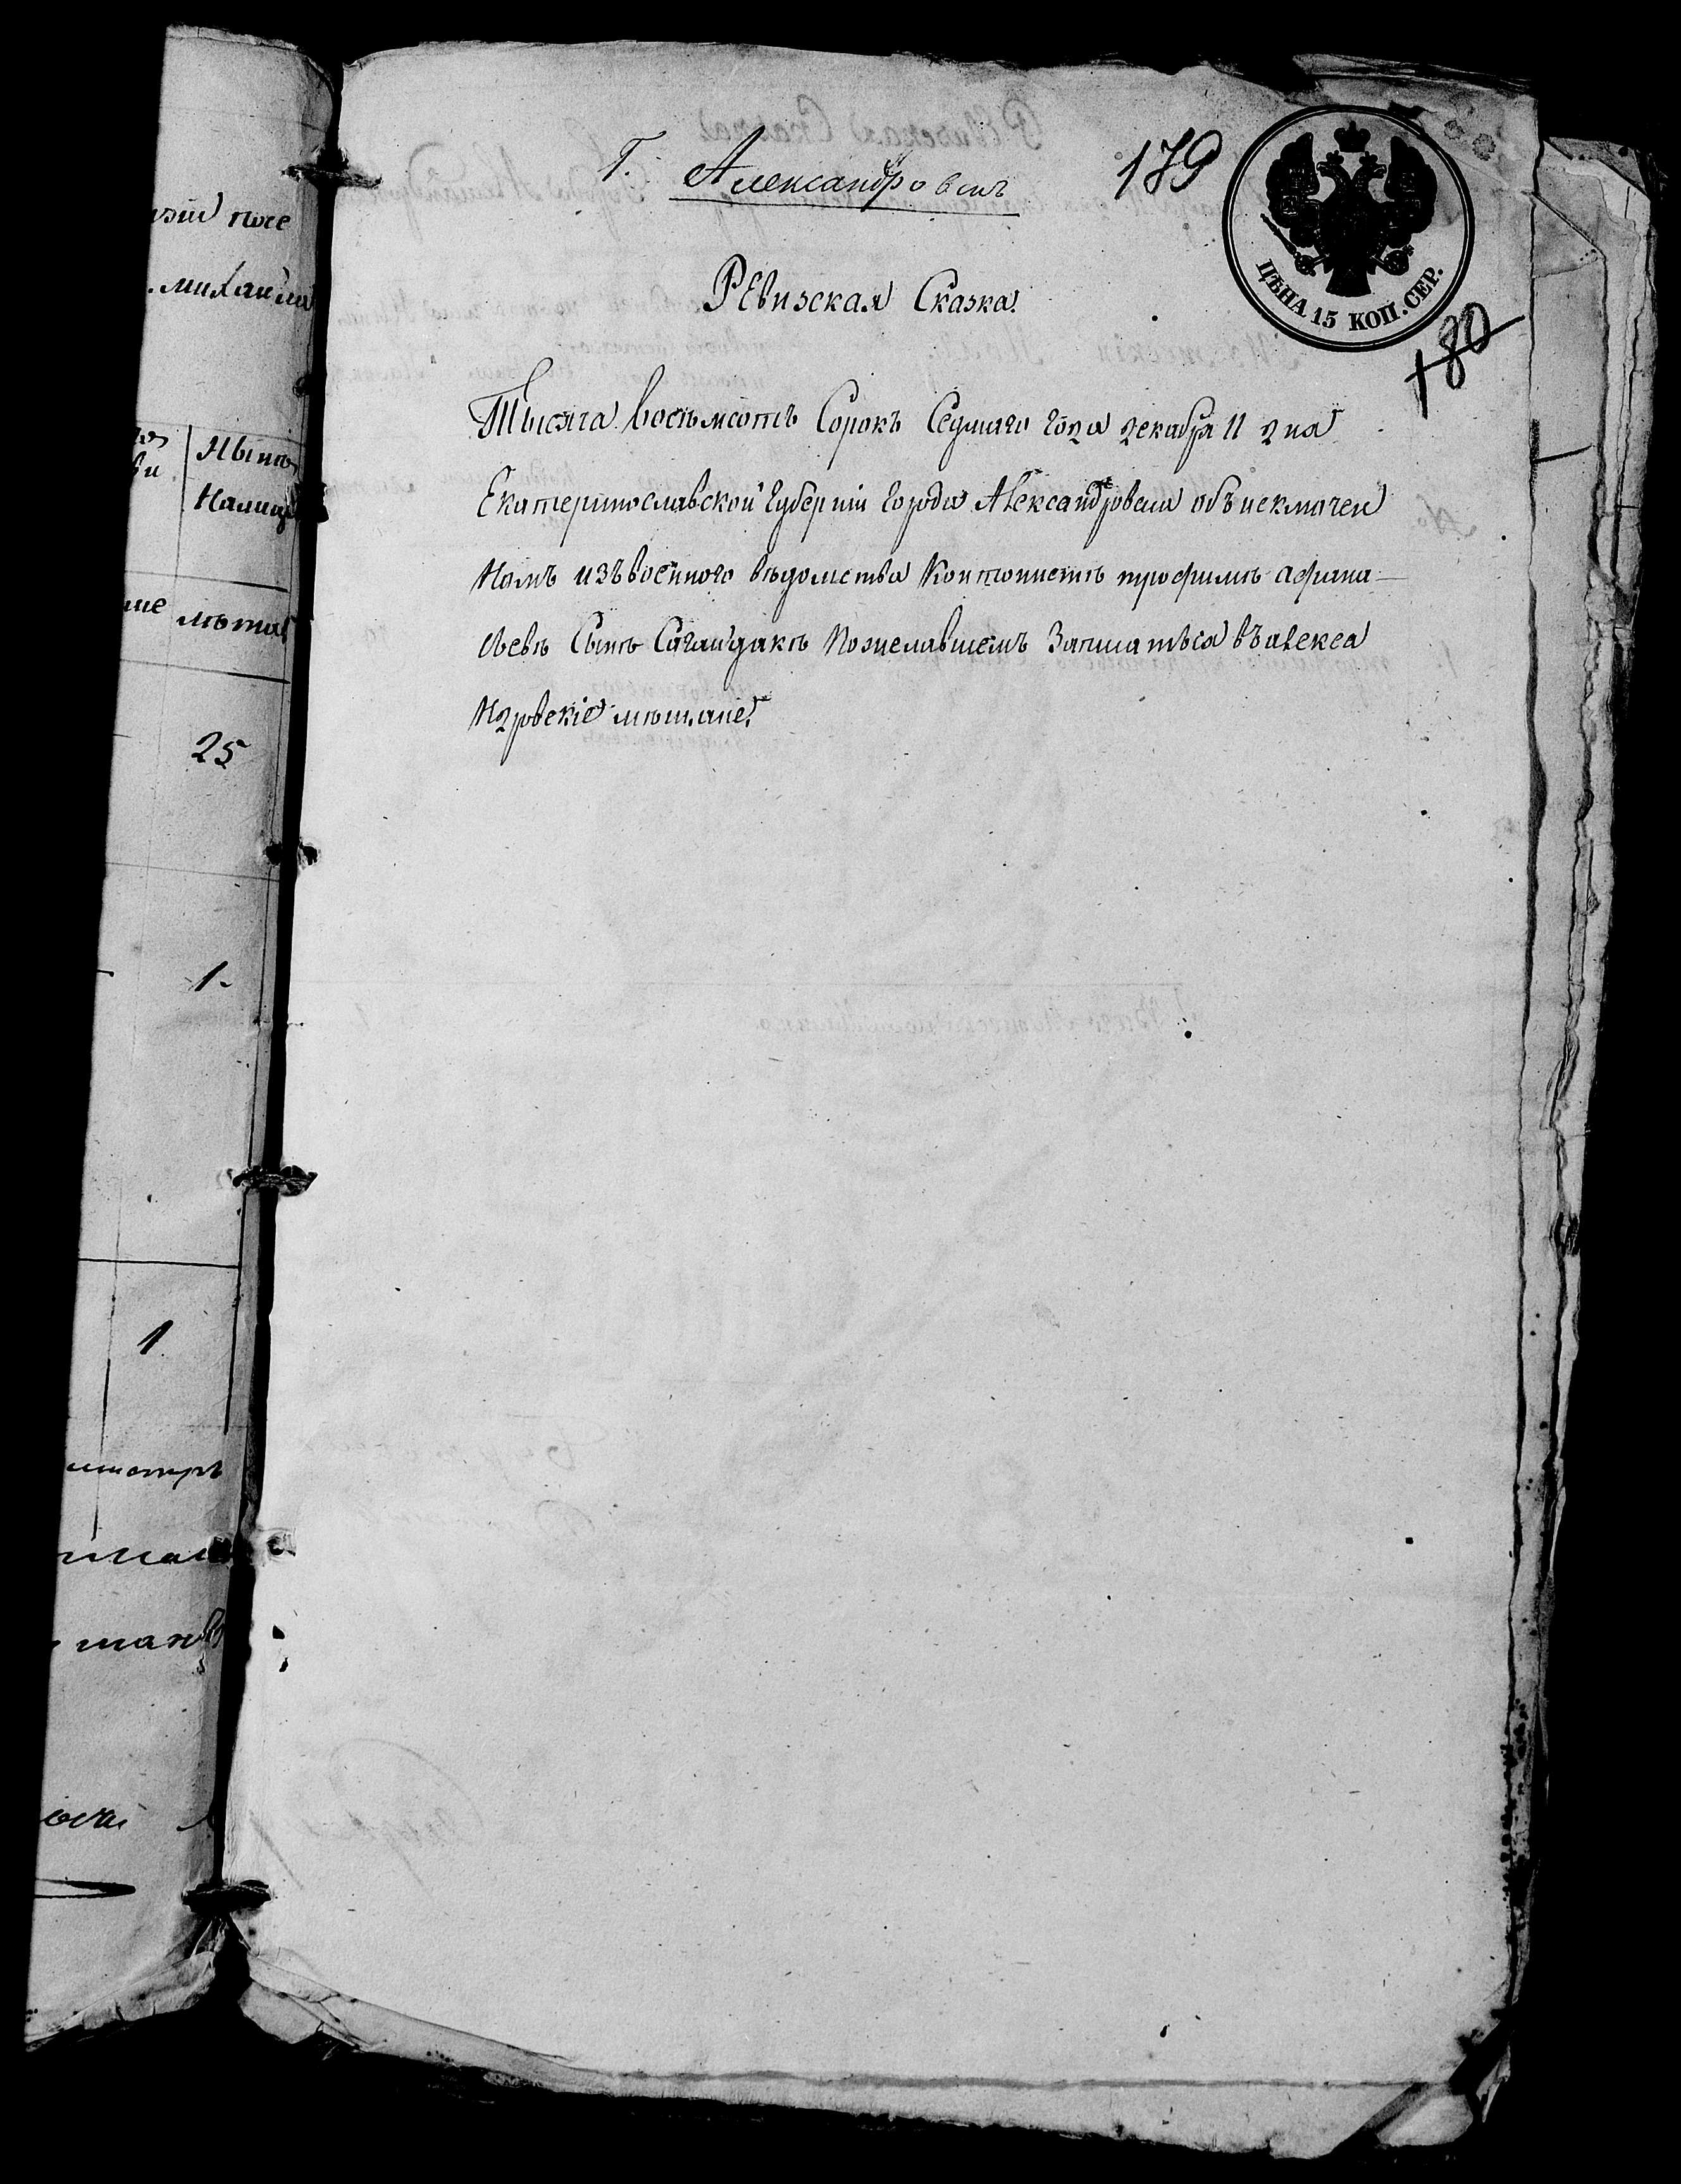 Г. Александровскъ
179
ЦѢНА 15 КОП. СЕР.
180
Ревизская Сказка.
Тысяча восемьсотъ Сорокъ Седмаго года декабря 11 дня
Екатеринославской губерніи города Александровска объ исключен
номъ изъ военного вѣдомства Кантонистѣ трофимѣ афана
сьевѣ Сынѣ Сагайдакѣ пожелавшемъ записаться въ алекса
ндровскіе мѣщане.
михаила
25
1
1